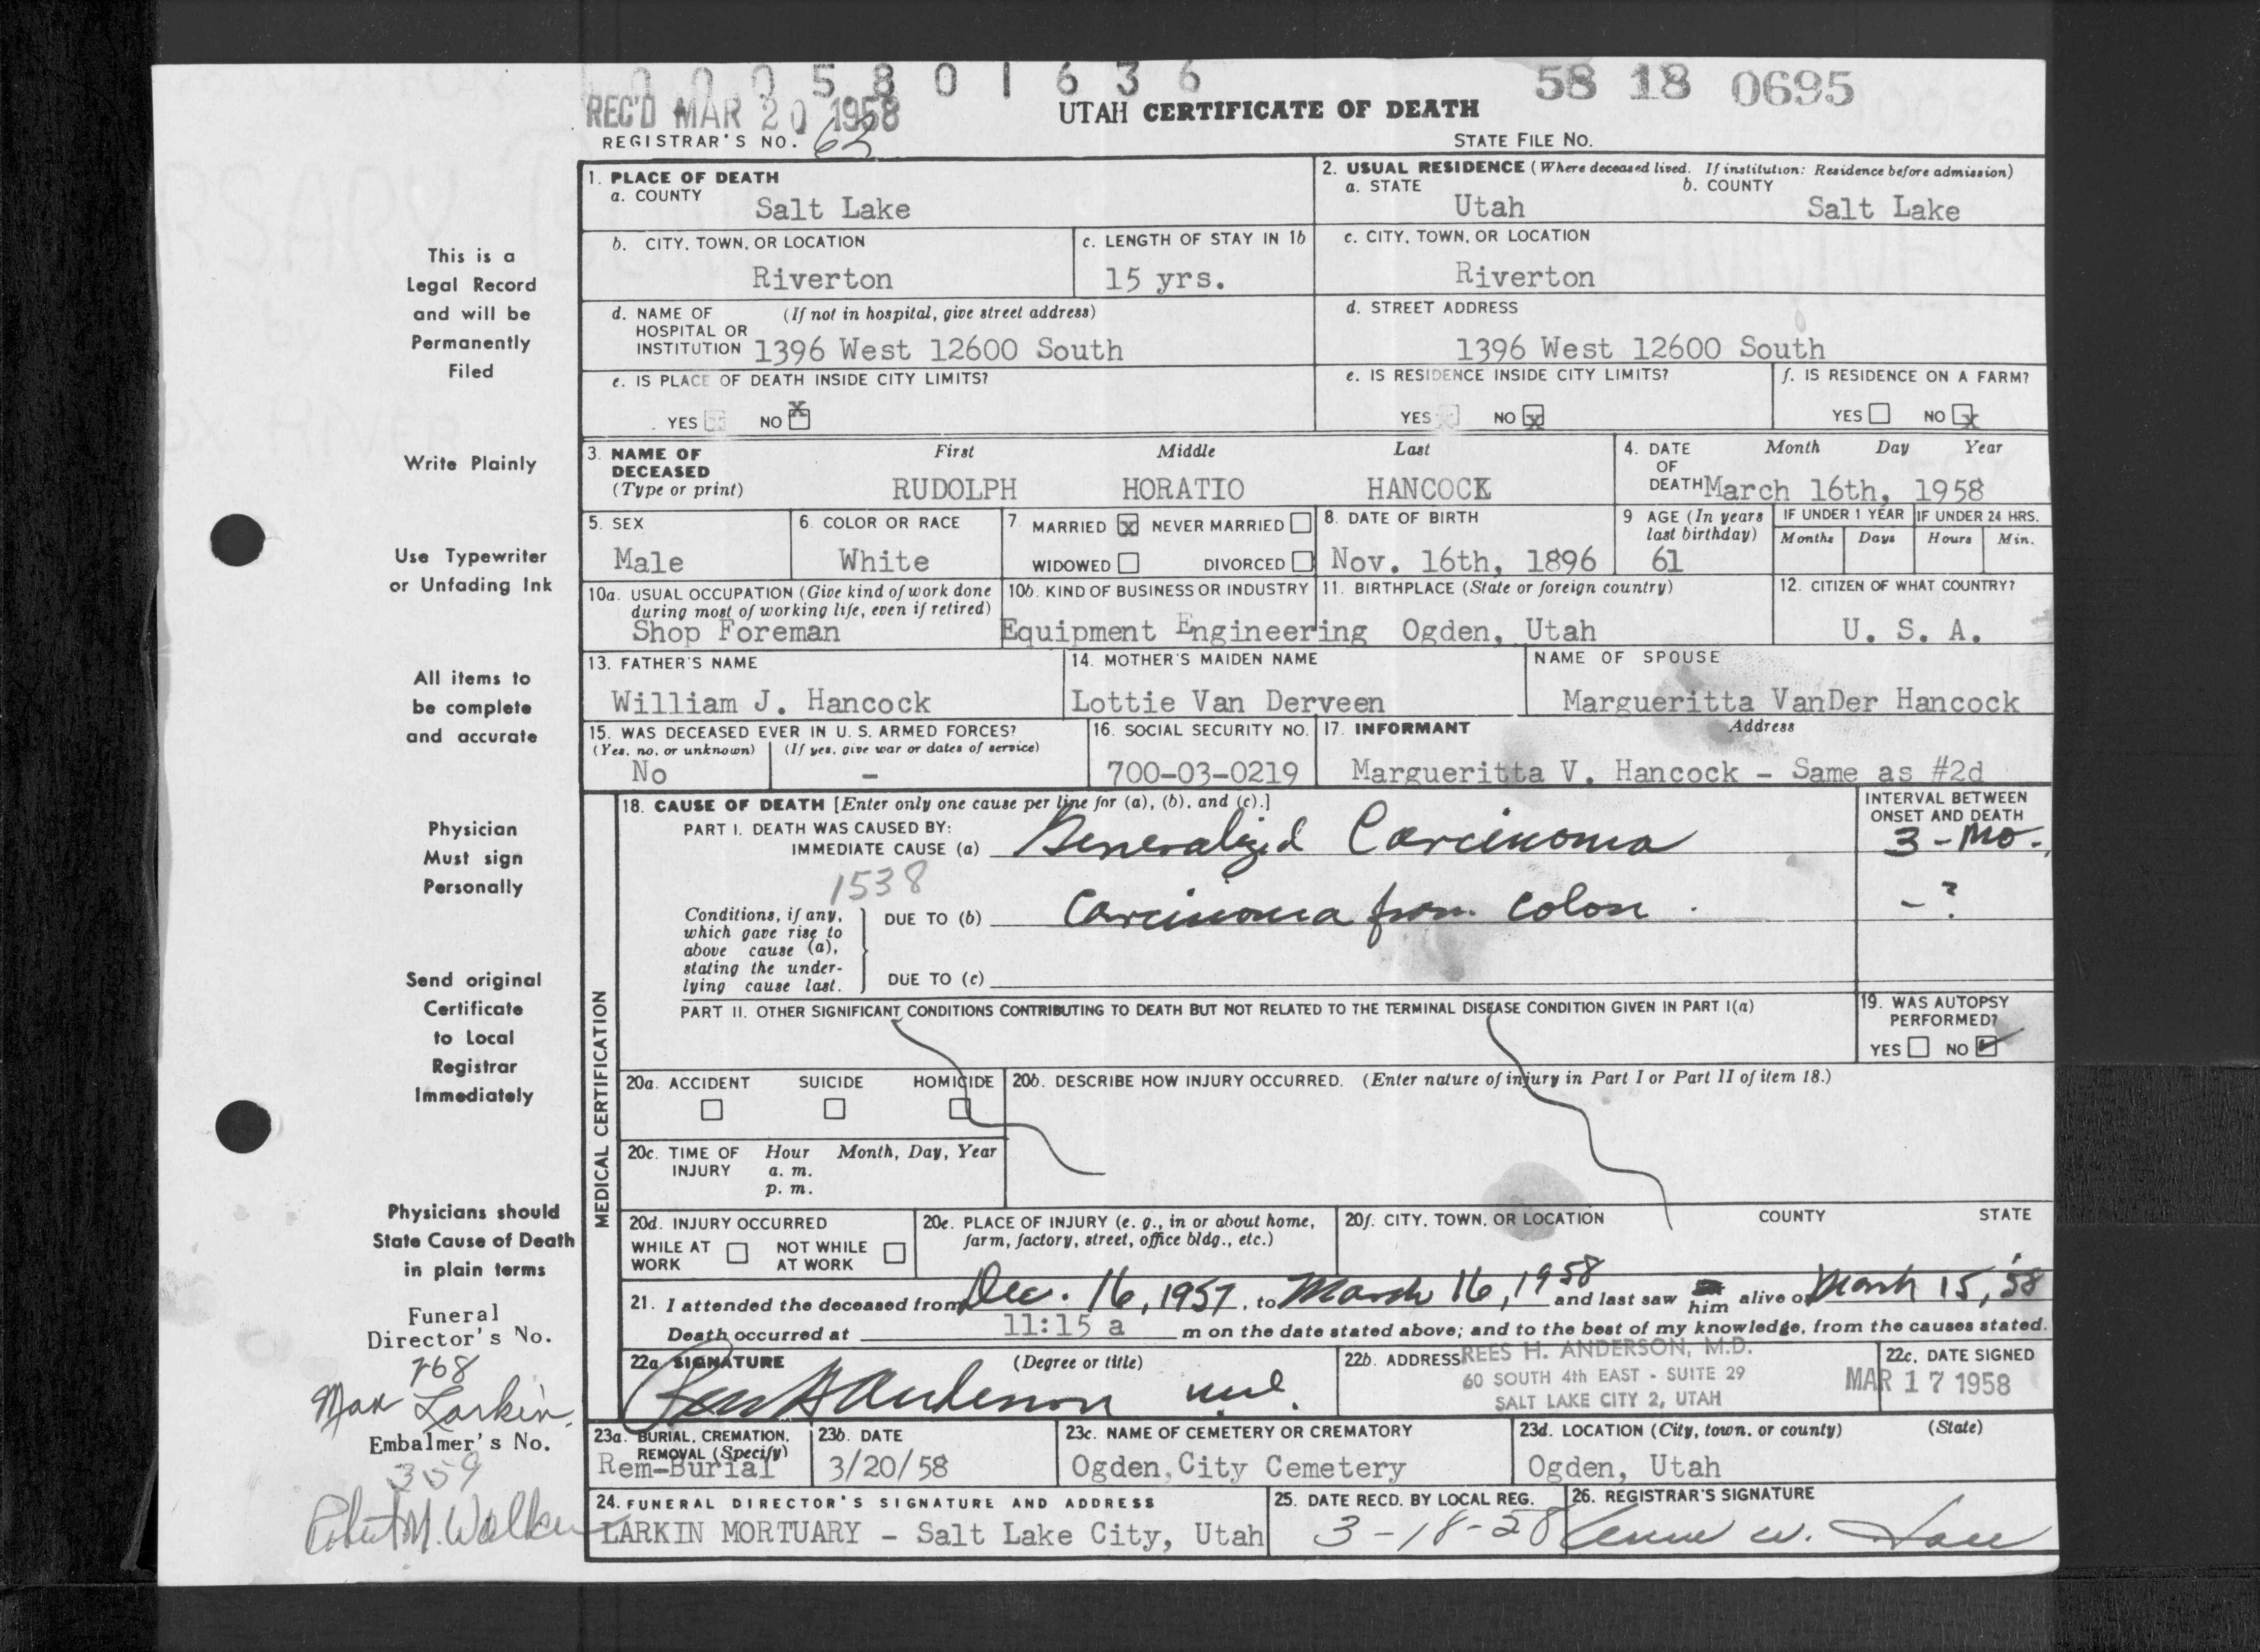 0 0 0 5 8 0 1 6 3 6
58 18 0695
REC'D MAR 20 1958
UTAH CERTIFICATE OF DEATH
REGISTRAR'S NO. 62
STATE FILE NO.
This is a
Legal Record
and will be
Permanently
Filed
Write Plainly
Use Typewriter
or Unfading Ink
All items to
be complete
and accurate
Physician
Must sign
Personally
Send original
Certificate
to Local
Registrar
Immediately
Physicians should
State Cause of Death
in plain terms
Funeral
Director's No.
268
Max Larkin
Embalmer's No.
359
Robert M. Walker
1. PLACE OF DEATH
a. COUNTY
Salt Lake
2. USUAL RESIDENCE (Where deceased lived. If institution: Residence before admission)
a. STATE b. COUNTY
Utah Salt Lake
b. CITY, TOWN, OR LOCATION
Riverton
c. LENGTH OF STAY IN 1b
15 yrs.
c. CITY, TOWN, OR LOCATION
Riverton
d. NAME OF (If not in hospital, give street address)
HOSPITAL OR
INSTITUTION 1396 West 12600 South
d. STREET ADDRESS
1396 West 12600 South
e. IS PLACE OF DEATH INSIDE CITY LIMITS?
YES NO X
e. IS RESIDENCE INSIDE CITY LIMITS?
YES NO X
f. IS RESIDENCE ON A FARM?
YES NO X
3. NAME OF
DECEASED
(Type or print)
First Middle Last
RUDOLPH HORATIO HANCOCK
4. DATE Month Day Year
OF
DEATH March 16th, 1958
5. SEX
Male
6. COLOR OR RACE
White
7. MARRIED X NEVER MARRIED
WIDOWED DIVORCED
8. DATE OF BIRTH
Nov. 16th, 1896
9 AGE (In years
last birthday)
61
IF UNDER 1 YEAR
Months Days
IF UNDER 24 HRS.
Hours Min.
10a. USUAL OCCUPATION (Give kind of work done
during most of working life, even if retired)
Shop Foreman
10b. KIND OF BUSINESS OR INDUSTRY
Equipment Engineering
11. BIRTHPLACE (State or foreign country)
Ogden, Utah
12. CITIZEN OF WHAT COUNTRY?
U. S. A.
13. FATHER'S NAME
William J. Hancock
14. MOTHER'S MAIDEN NAME
Lottie Van Derveen
NAME OF SPOUSE
Margueritta VanDer Hancock
15. WAS DECEASED EVER IN U. S. ARMED FORCES?
(Yes, no, or unknown) (If yes, give war or dates of service)
No –
16. SOCIAL SECURITY NO.
700-03-0219
17. INFORMANT Address
Margueritta V. Hancock - Same as #2d
MEDICAL CERTIFICATION
18. CAUSE OF DEATH [Enter only one cause per line for (a), (b), and (c).]
PART I. DEATH WAS CAUSED BY:
IMMEDIATE CAUSE (a) Generalized Carcinoma
INTERVAL BETWEEN
ONSET AND DEATH
3-Mo.
1538
Conditions, if any,
which gave rise to
above cause (a),
stating the under-
lying cause last.
DUE TO (b) Carcinoma from colon.
- ?
DUE TO (c)
PART II. OTHER SIGNIFICANT CONDITIONS CONTRIBUTING TO DEATH BUT NOT RELATED TO THE TERMINAL DISEASE CONDITION GIVEN IN PART I(a)
19. WAS AUTOPSY
PERFORMED?
YES NO ✓
20a. ACCIDENT SUICIDE HOMICIDE
20b. DESCRIBE HOW INJURY OCCURRED. (Enter nature of injury in Part I or Part II of item 18.)
20c. TIME OF Hour Month, Day, Year
INJURY a. m.
p. m.
20d. INJURY OCCURRED
WHILE AT NOT WHILE
WORK AT WORK
20e. PLACE OF INJURY (e. g., in or about home,
farm, factory, street, office bldg., etc.)
20f. CITY, TOWN, OR LOCATION COUNTY STATE
21. I attended the deceased from Dec. 16, 1957, to March 16, 1958 and last saw him alive on March 15, '58
Death occurred at 11:15 a m on the date stated above; and to the best of my knowledge, from the causes stated.
22a. SIGNATURE (Degree or title)
Rees H Anderson M.D.
22b. ADDRESS REES H. ANDERSON, M.D.
60 SOUTH 4th EAST - SUITE 29
SALT LAKE CITY 2, UTAH
22c. DATE SIGNED
MAR 17 1958
23a. BURIAL, CREMATION,
REMOVAL (Specify)
Rem-Burial
23b. DATE
3/20/58
23c. NAME OF CEMETERY OR CREMATORY
Ogden City Cemetery
23d. LOCATION (City, town, or county) (State)
Ogden, Utah
24. FUNERAL DIRECTOR'S SIGNATURE AND ADDRESS
LARKIN MORTUARY - Salt Lake City, Utah
25. DATE RECD. BY LOCAL REG.
3-18-58
26. REGISTRAR'S SIGNATURE